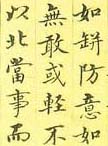 如缾防意如
無敢或輕不
以北當事而